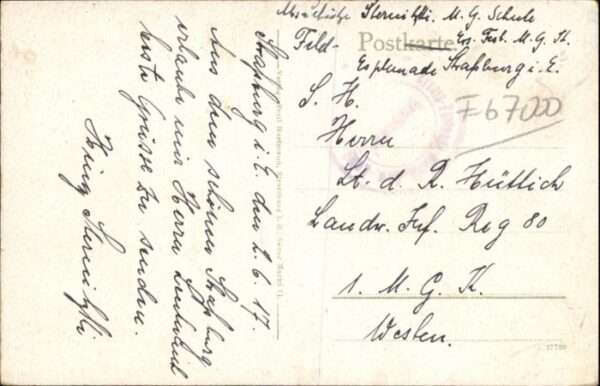 Schütze Sternitzki. M. G. Schule
Ers. Fest. M. G. K.
Esplanade Straßburg i. E.
Feld-Postkarte
F 67000
S. H.
Herrn
Lt. d. R. Hüttich
Landw. Inf. Reg 80
1. M. G. K.
Westen.
Straßburg i. E. den 2. 6. 17.
Aus dem schönen Straßburg
erlaube mir Herrn Leutnant
beste Grüsse zu senden.
Sternitzki